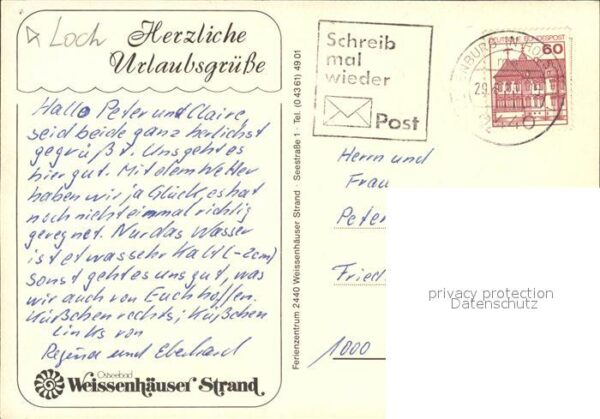 Loch
Herzliche
Urlaubsgrüße
Hallo Peter und Claire,
seid beide ganz herlichst
gegrüßt. Uns geht es
hier gut. Mit dem Wetter
haben wir ja Glück, es hat
noch nicht einmal richtig
geregnet. Nur das Wasser
ist etwas sehr kalt (-2cm)
Sonst geht es uns gut, was
wir auch von Euch hoffen.
Küßchen rechts, Küßchen
links von
Regina und Eberhard
Ostseebad
Weissenhäuser Strand
Ferienzentrum 2440 Weissenhäuser Strand · Seestraße 1 · Tel. (04361) 4901
Schreib
mal
wieder
Post
DEUTSCHE BUNDESPOST
60
NBURG IN HO
29.
2440
Herrn und
Frau
Peter
Fried
1000
privacy protection
Datenschutz